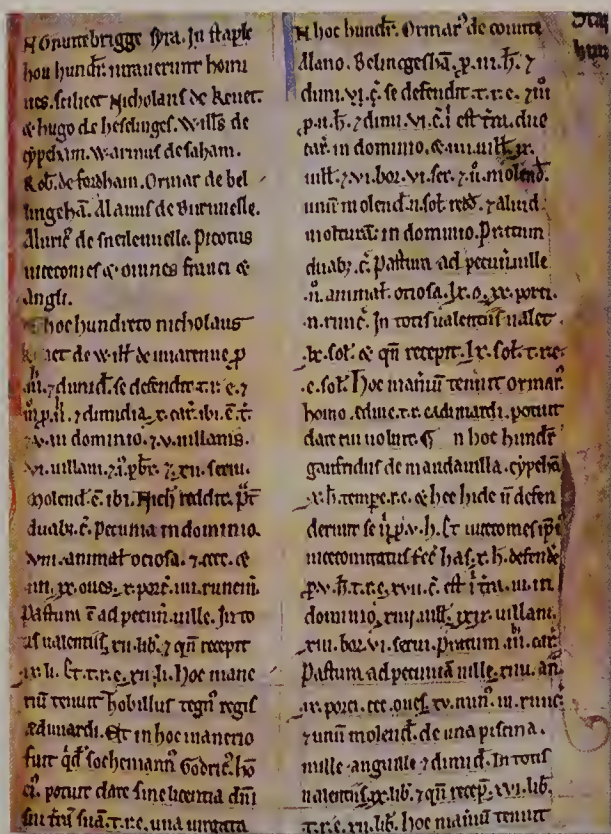 N Grantebrigge syra. In staple
hou hundr̄. iurauerunt homi
nes. scilicet Nicholaus de kenet.
& hugo de heselinges. Willʼs de
cypeham. Warinus de saham.
Rob̄. de fordham. Ormar de bel
lingehā. Alanus de Burunelle.
Aluricʼ de sneileunelle. Picotus
uicecomes & omnes franci &
angli.
hoc hundreto nicholaus
de Willʼ de uuarenne p̱
⁊ dimid̄. se defendit t.r.e. ⁊
⁊ dimidia. x. car̄. ibi. ē. t̄
⁊ v. in dominio. ⁊ v. uillanis.
vi. uillani. ⁊ .ii. pbr̄. ⁊ xii. serui.
Molend̄. ē. ibi. Nichʼ reddit. p̄t
duabȝ. c̄. Pecunia in dominio.
viii. animalʼ ociosa. ⁊ cccc. &
iiii. xx. oues. x. porcʼ. iiii. runcini.
Pastura ē ad pecuñ. uille. In to
tis ualentiis. xii. lib̄. ⁊ qñ recepit
ix. li. Et. t.r.e. xii. li. Hoc mane
riū tenuit Tobillus tegnʼ regis
ædunardi. Et in hoc manerio
fuit qʼd̄ sochemannʼ Godricʼ. hō
eiʼ. potuit dare sine licentia dñi
sui trā suā. t.r.e. una uirgata
N hoc hundr̄. Ormarʼ de comite
Alano. Belincgeshā. p̱. iii. h̄. ⁊
dimi. vi. c̄. se defendit. t.r.e. ⁊ iū
p̱. ii. h̄. ⁊ dimi. vi. c̄. ī est tr̄a. due
car̄. in dominio. & iiii. uillʼ. ix.
uillʼ. ⁊ vi. bor. vi. ser. ⁊ .ii. molend̄.
unū molend̄. ii. sol̄. redd̄. ⁊ aliud
molturā. in dominio. Pratum
duabȝ. c̄. Pastura ad pecuñ. uille
.ii. animalʼ. ociosa. lx. o. xx. porci.
.ii. runcʼ. In totis ualentiis ualet
.lx. sol̄. & qñ recepit. lx. sol̄. t.r.e.
.c. sol̄. Hoc maniū tenuit ormarʼ.
homo. ediue. t.r. eaduuardi. potuit
dare cui uoluit. ¶ n hoc hundr̄
gaufridus de mandauilla. cypehā
.x. h̄. tempr̄. r.e. & hec hide ñ defen
derunt se ñ p̱ v. h. Et uicecomes ipʼi
uicecomitatus fecʼ has. x. h̄. defend̄e
p̱ v. h̄. t.r.e. xvii. c̄. est ī tr̄a. iii. in
dominio. xiiii. uillʼ. xix. uillani.
xiii. bor. vi. serui. Pratum. iii. car̄.
Pastura ad pecuniā uille. xiiii. añ.
.ix. porci. ccc. oues. xv. min̄. iii. runcʼ.
⁊ unū molend̄. de una piscina.
mille anguille ⁊ dimid̄. In totis
ualentiis. xx. lib̄. ⁊ qñ recep̄. xvi. lib̄.
.t.r.e. xii. lib̄. hoc maniū tenuit